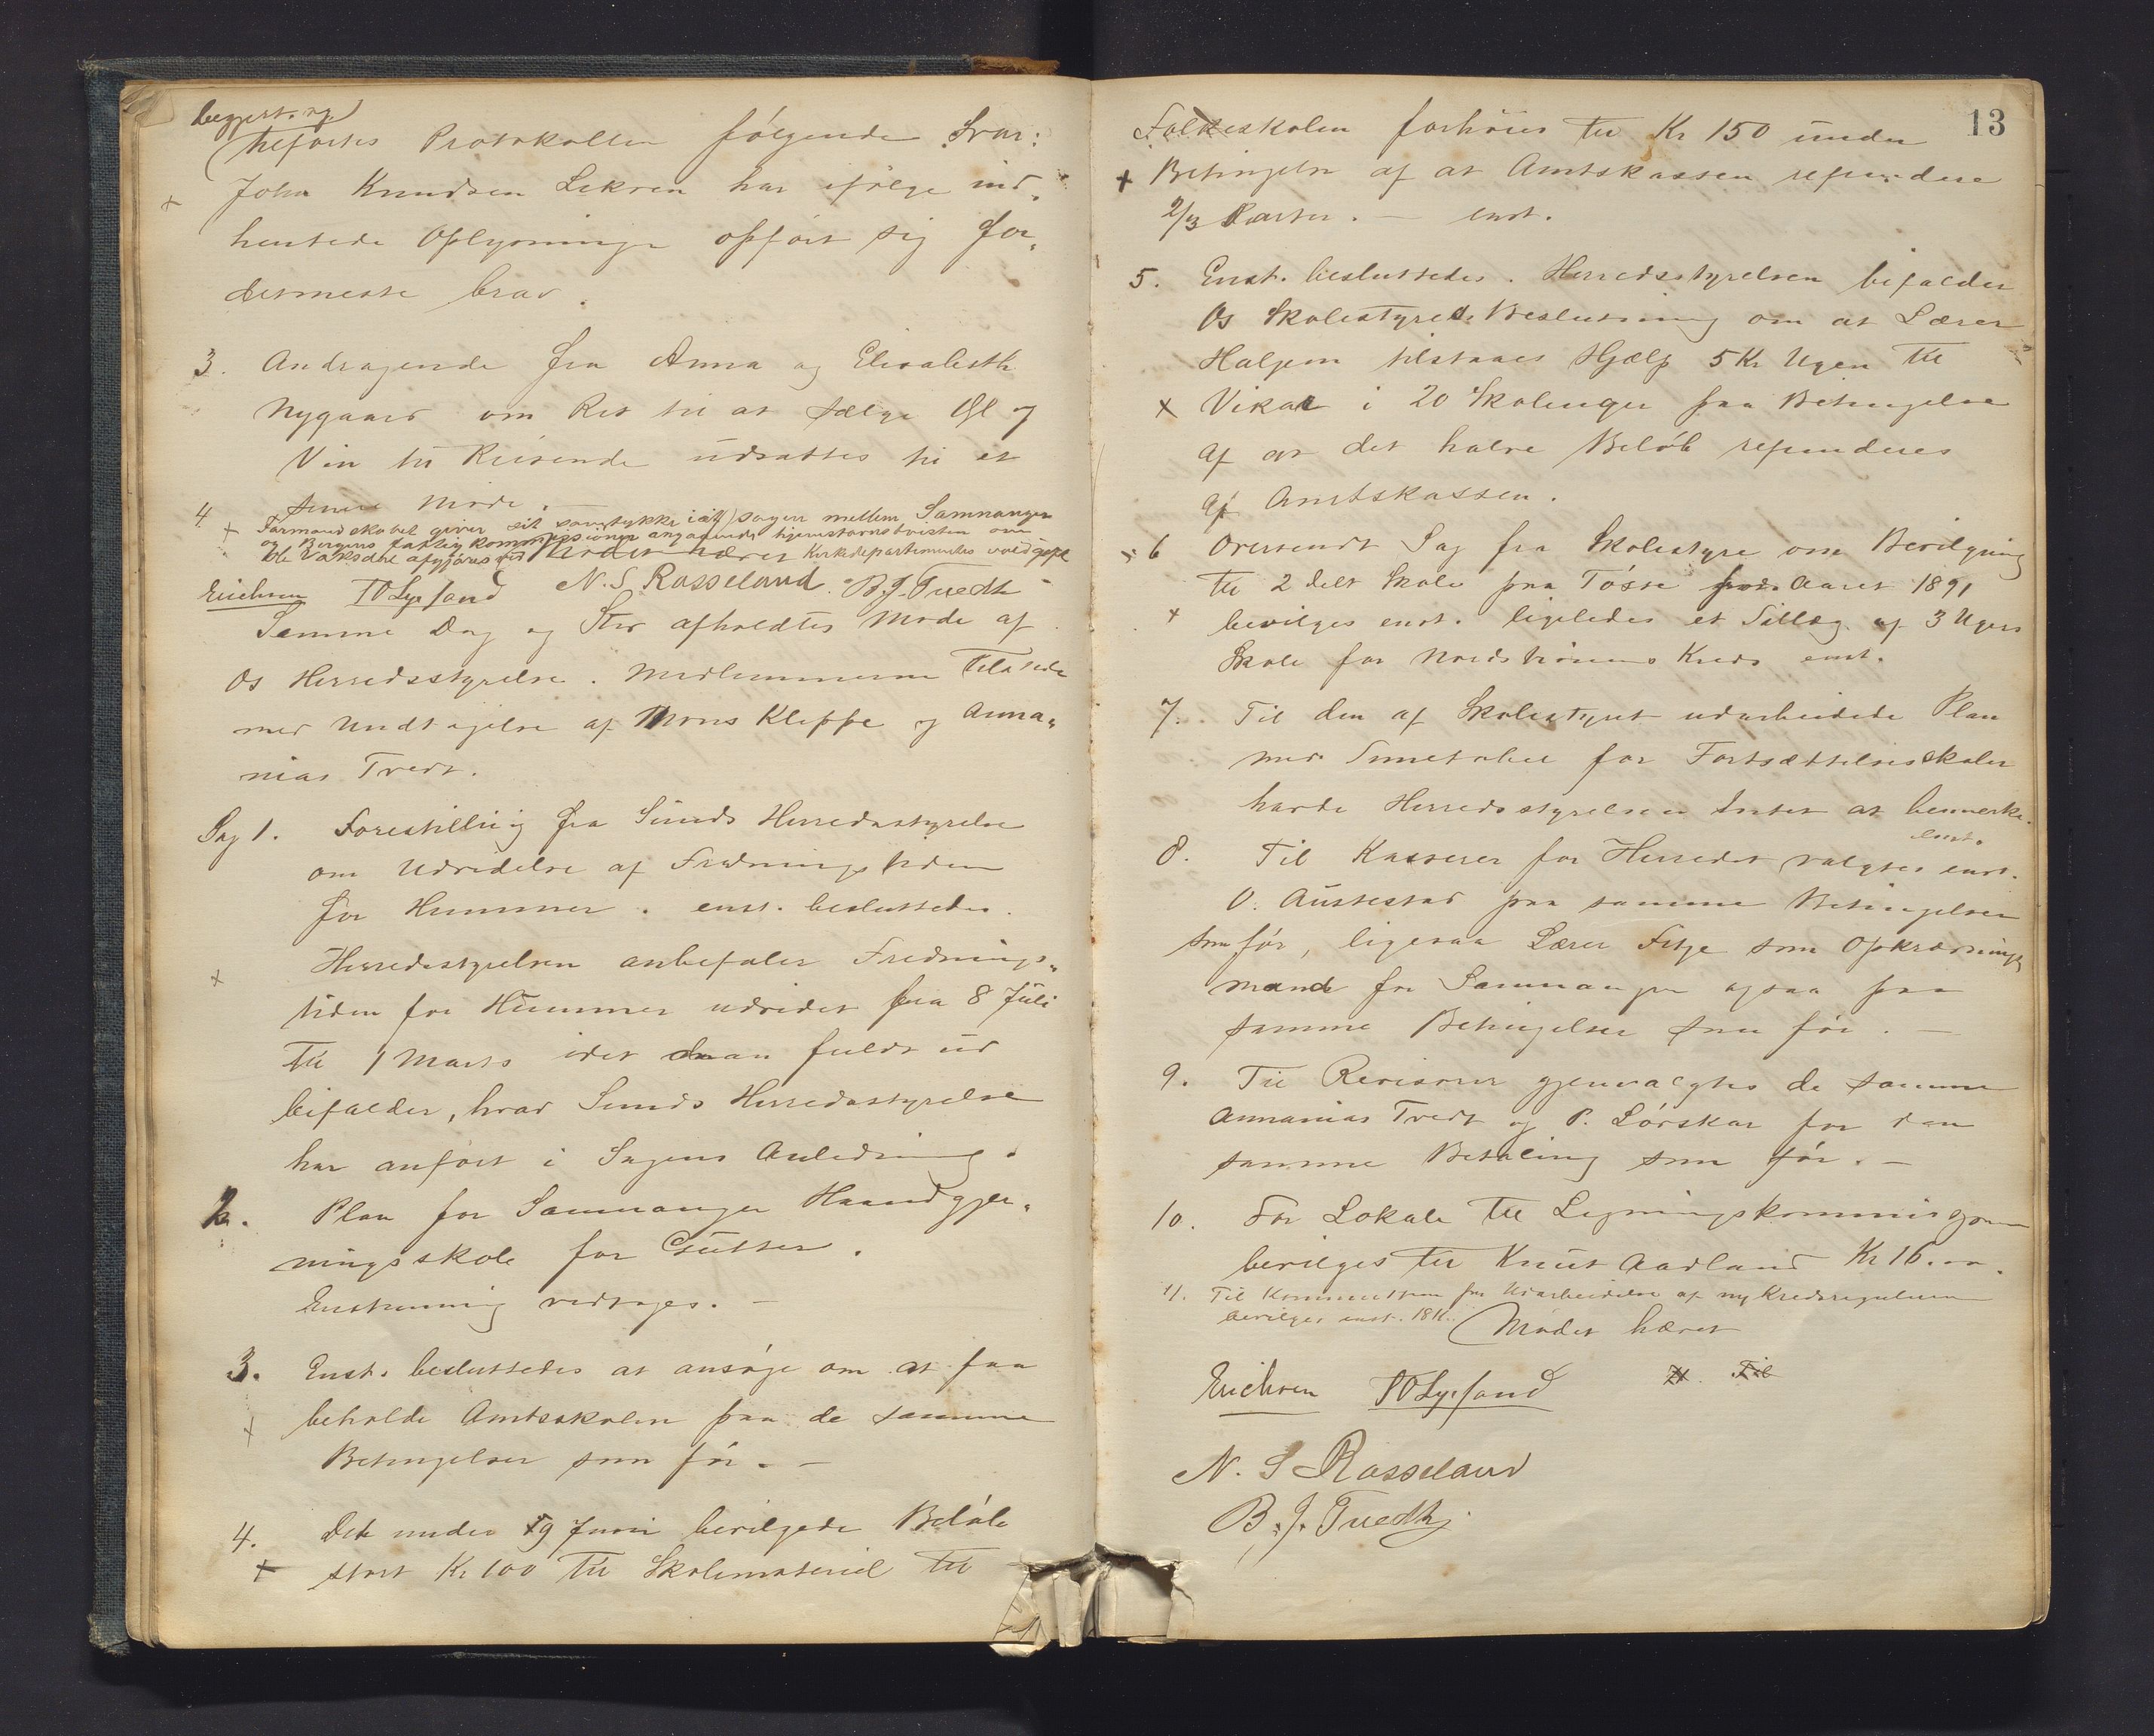 begjert. og
tilførtes Protokollen følgende Svar:
John Knudsen Lekven har ifølge ind-
hentede Oplysninger opført sig for-
detmeste brav.
3. Andragende fra Anna og Elisabeth
Nygaard om Ret til at sælge Øl og
Vin til Reisende udsattes til et
senere Møde.
4 Formandskabet giver sit samtykke i at sagen mellem Samnanger
og Bergens fattigkommissioner angaaende hjemstavnstvisten om
Ole Vaksdal afgjøres ved Kirkedepartementets voldgift
Erichsen TO Lyssand N. S. Rasseland. B. J. Tvedth
Samme Dag og Sted afholdtes Møde af
Os Herredsstyrelse. Medlemmerne Tilstede
med Undtagelse af Mons Kleppe og Anna-
nias Tvedt.
Sag 1. Forestilling fra Sunds Herredsstyrelse
om Udvidelse af Fredningstiden
for Hummer. enst. besluttedes.
Herredsstyrelsen anbefaler Frednings-
tiden for Hummer udvidet fra 8 Juli
til 1 Marts idet man fuldt ud
bifalder, hvad Sunds Herredsstyrelse
har anført i Sagens Anledning.
2. Plan for Samnanger Haandgjer-
ningsskole for Gutter.
Enstemmig vedtages. —
3. Enst. besluttedes at ansøge om at faa
beholde Amtsskolen paa de samme
Betingelser som før. —
4. Det under 19 Juni bevilgede Beløb
stort Kr 100 til Skolemateriel til
13
Folkeskolen forhøies til Kr 150 under
Betingelse af at Amtskassen refundere
2/3 Parter. — enst.
5. Enst. besluttedes. Herredsstyrelsen bifalder
Os Skolestyres Beslutning om at Lærer
Haljem tilstaaes Hjælp 5 Kr Ugen til
Vikar i 20 Skoleuger paa Betingelse
af at det halve Beløb refunderes
af Amtskassen.
6 Oversendt Sag fra Skolestyre om Bevilgning
til 2 delt Skole paa Tøsse for Aaret 1891
bevilges enst. ligeledes et Tillæg af 3 Ugers
Skole for Nordstrønens Kreds enst.
7. Til den af Skolestyret udarbeidede Plan
med Timetabel for Fortsættelsesskoler
havde Herredsstyrelsen Intet at bemærke.
enst.
8. Til Kasserer for Herredet valgtes enst.
O. Austestad paa samme Betingelser
som før, ligesaa Lærer Fitje som Opkrævnings
mand for Samnanger ogsaa paa
samme Betingelser som før. —
9. Til Revisorer gjenvalgtes de samme
Annanias Tvedt og P. Lørskar for den
samme Betaling som før. —
10. For Lokale til Ligningskommissjonen
bevilges til Knut Aadland Kr 16.00.
11. Til Kommitteen for Udarbeidelse af ny Kredsregulering
bevilges enst. 18 K.
Mødet hævet
Erichsen TO Lyssand 11. Til
N. S Rasseland
B. J. Tvedth